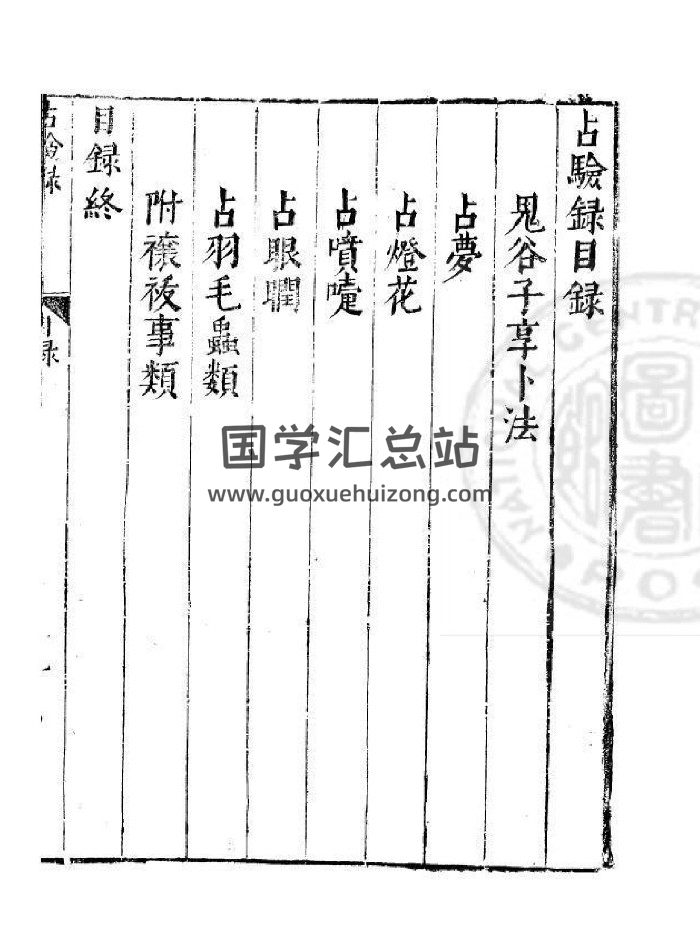 占驗録目録
鬼谷子享卜法
占夢
占燈花
占噴嚏
占眼瞤
占羽毛蟲類
附禳祓事類
目録終
占驗録
目録
国学汇总站
www.guoxuehuizong.com
圖書